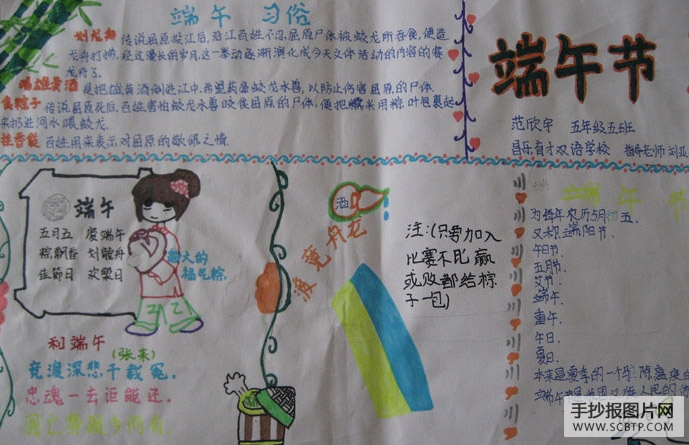 端午 习俗
划龙舟 传说屈原投江后,沿江百姓不忍屈原尸体被蛟龙所吞食,便造
龙舟打捞,经过漫长的岁月,这一举动逐渐演化成今天文体活动的内容的赛
龙舟了.
喝雄黄酒 是把雄黄酒倒进江中,希望药晕蛟龙水兽,以防止伤害屈原的尸体.
食粽子 传说屈原死后,百姓害怕蛟龙水兽咬食屈原的尸体,便把糯米用粽叶包裹起
来扔进河水喂蛟龙.
挂香袋 百姓用来表示对屈原的敬佩之情.
端午节
范欣宇 五年级五班
昌乐育才双语学校 指导老师
端午
五月五 庆端午
粽飘香 划龙舟
佳节日 欢聚日
最大的
福气粽.
和端午
(张耒)
竞渡深悲千载冤,
忠魂一去讵能还.
酒
竞舟龙
注:(只要加入
比赛不比赢
或败都给粽
子一包)
端午节
为每年农历5月初五.
又称端阳节.
午日节.
五月节.
艾节.
端午.
重午.
午日.
夏日.
本来是夏季的一个
手抄报图片网
WWW.SCBTP.COM